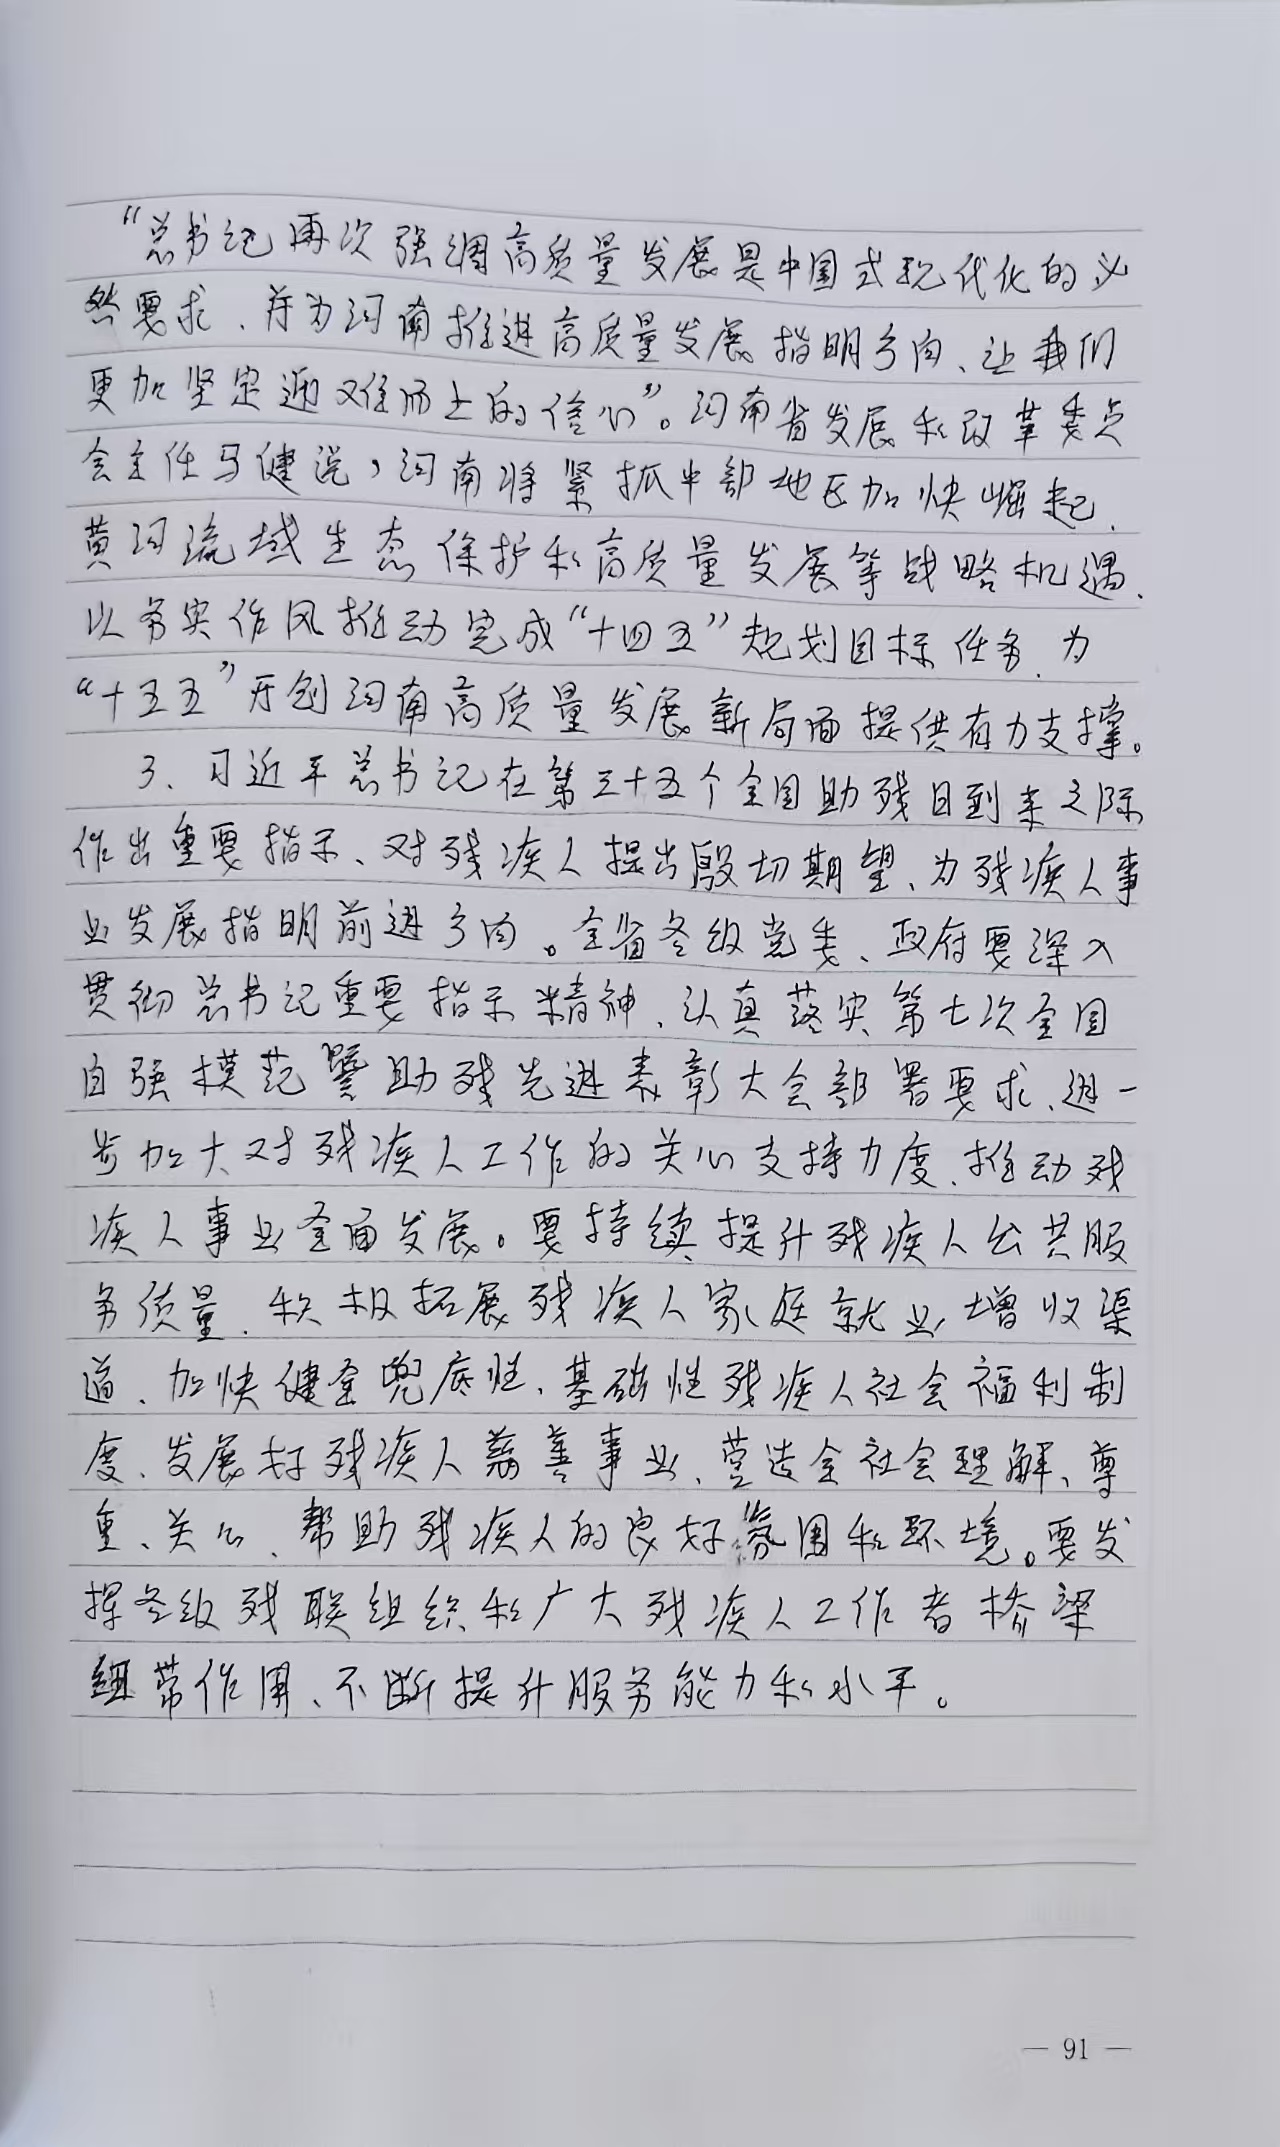 “总书记再次强调高质量发展是中国式现代化的必
然要求、并为河南推进高质量发展指明方向、让我们
更加坚定迎难而上的信心”。河南省发展和改革委员
会主任马健说，河南将紧抓中部地区加快崛起、
黄河流域生态保护和高质量发展等战略机遇、
以务实作风推动完成“十四五”规划目标任务、为
“十五五”开创河南高质量发展新局面提供有力支撑。
3、习近平总书记在第三十五个全国助残日到来之际
作出重要指示、对残疾人提出殷切期望、为残疾人事
业发展指明前进方向。全省各级党委、政府要深入
贯彻总书记重要指示精神、认真落实第七次全国
自强模范暨助残先进表彰大会部署要求、进一
步加大对残疾人工作的关心支持力度、推动残
疾人事业全面发展。要持续提升残疾人公共服
务质量、积极拓展残疾人家庭就业增收渠
道、加快健全兜底性、基础性残疾人社会福利制
度、发展好残疾人慈善事业、营造全社会理解、尊
重、关心、帮助残疾人的良好氛围和环境。要发
挥各级残联组织和广大残疾人工作者桥梁
纽带作用、不断提升服务能力和水平。
— 91 —